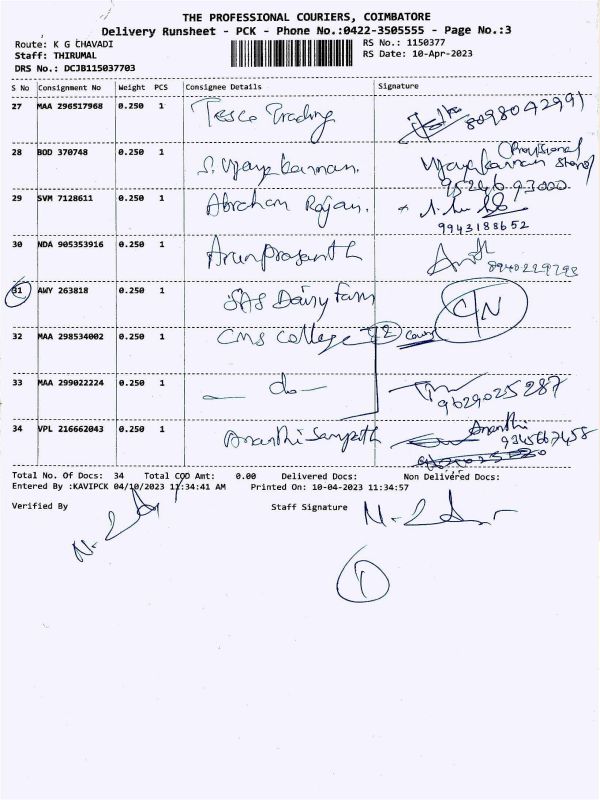 THE PROFESSIONAL COURIERS, COIMBATORE
Delivery Runsheet - PCK - Phone No.:0422-3505555 - Page No.:3
Route: K G CHAVADI RS No.: 1150377
Staff: THIRUMAL RS Date: 10-Apr-2023
DRS No.: DCJB115037703
S No Consignment No Weight PCS Consignee Details Signature
27 MAA 296517968 0.250 1 Tesco Trading 8098042991
28 BOD 370748 0.250 1 S. Vijaya kannan. Vijaya kannan
(Provisional Store)
9524693000
29 SVM 7128611 0.250 1 Abraham Rajan.
9943188652
30 NDA 905353916 0.250 1 Arunprasanth
31 AWY 263818 0.250 1 SAS Dairy Farm C/N
32 MAA 298534002 0.250 1 CMS College 2
33 MAA 299022224 0.250 1 — do — 9629025287
34 VPL 216662043 0.250 1 Ananthi Sampath Ananthi
9345667458
Total No. Of Docs: 34 Total COD Amt: 0.00 Delivered Docs: Non Delivered Docs:
Entered By :KAVIPCK 04/10/2023 11:34:41 AM Printed On: 10-04-2023 11:34:57
Verified By Staff Signature
1